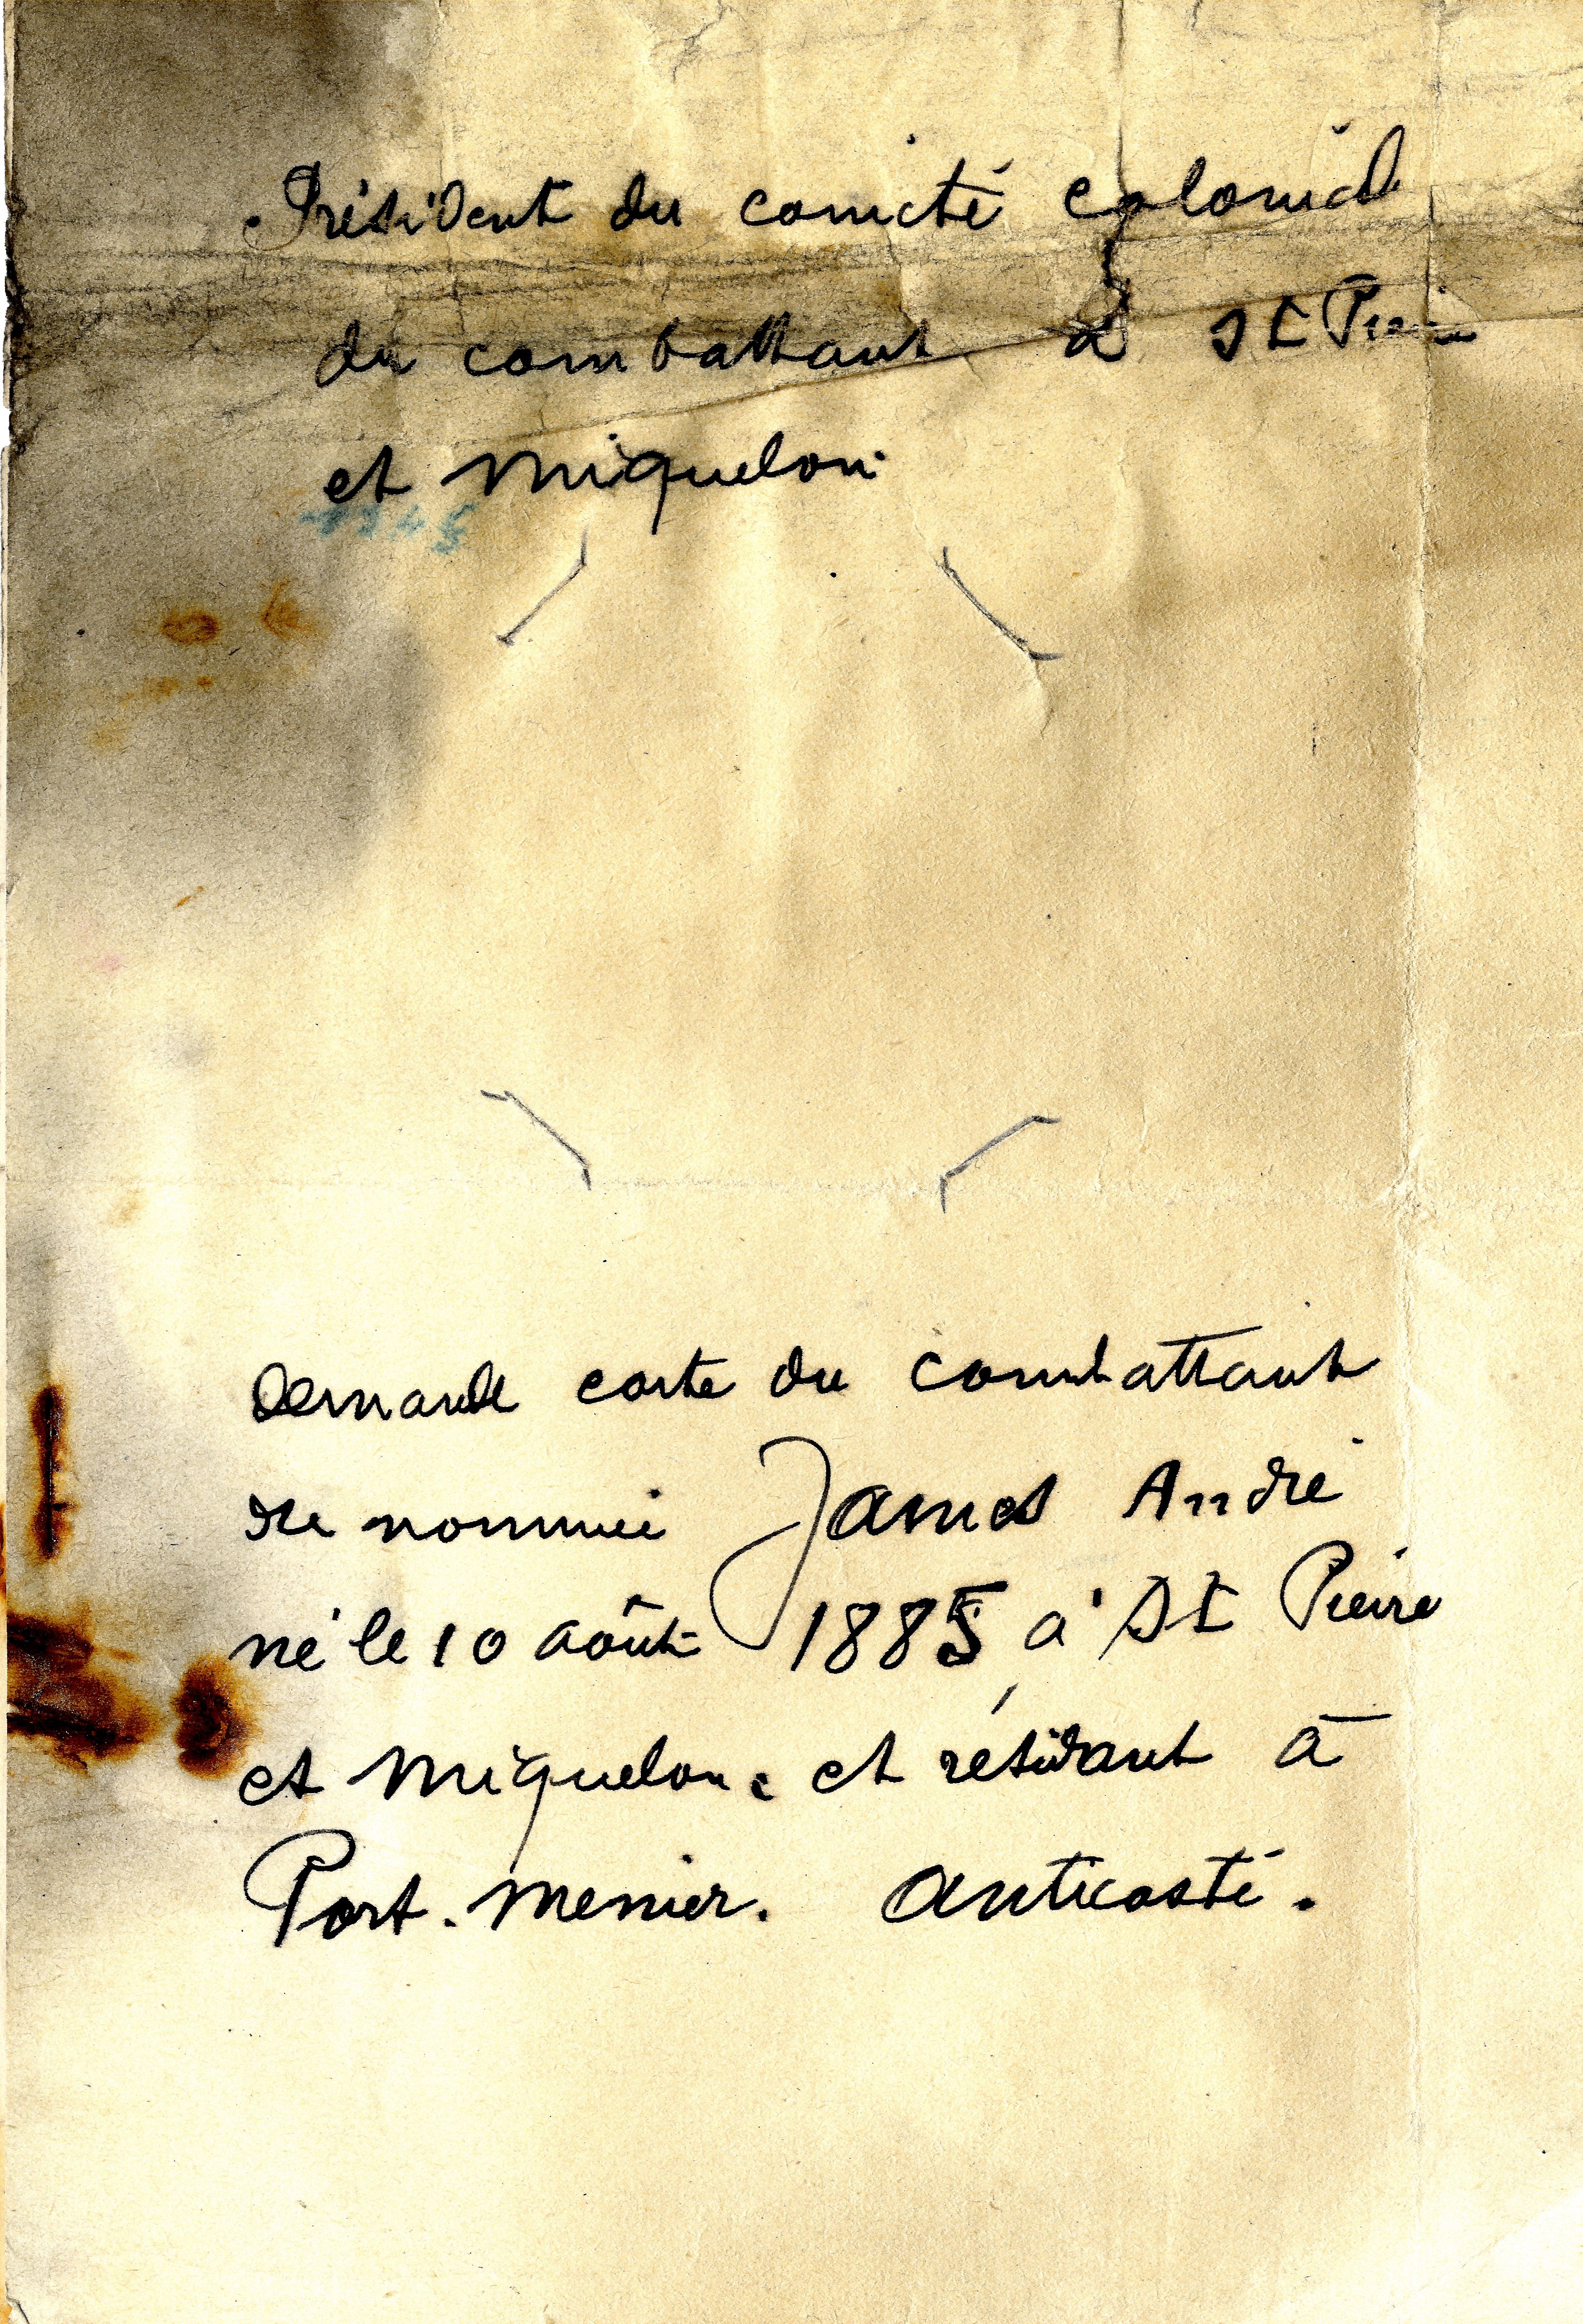 Président du comité colonial
du combattant à St Pierre
et Miquelon
Demande carte du combattant
du nommé James André
né le 10 août 1885 à St Pierre
et Miquelon. et résidant à
Port. Menier. Anticosti.